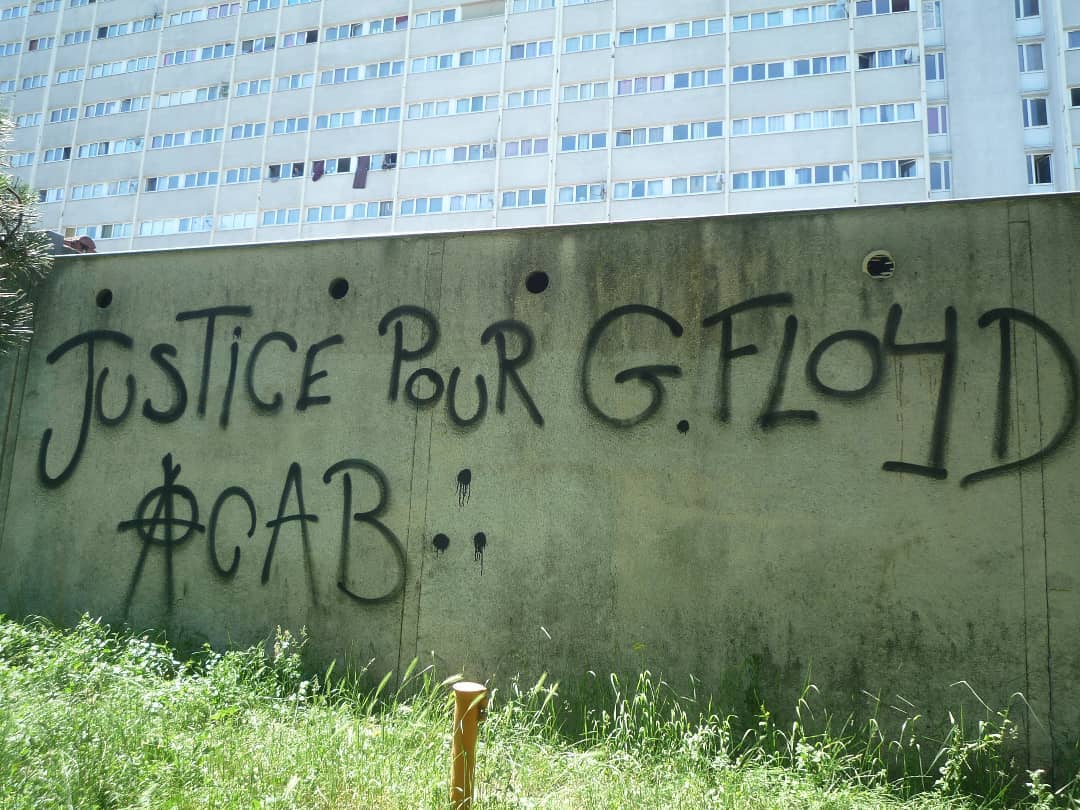 JUSTICE POUR G. FLOYD
ACAB